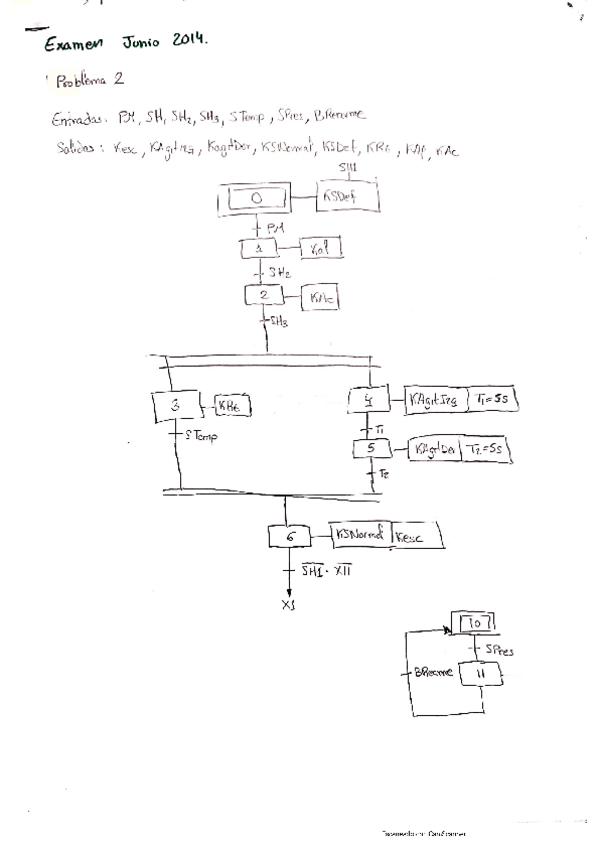 Examen Junio 2014.
Problema 2
Entradas: PM, SH1, SH2, SH3, STemp, SPres, BRearme
Salidas: Kesc, KAgitIzq, KagitDer, KSNormal, KSDef, KRe, KAl, KAc
SH1
0 KSDef
PM
1 Kal
SH2
2 KAc
SH3
3 KRe
4 KAgitIzq T1=5s
STemp
T1
5 KAgitDer T2=5s
T2
6 KSNormal Kesc
SH1 · X11
X1
10
SPres
BRearme 11
Escaneado con CamScanner